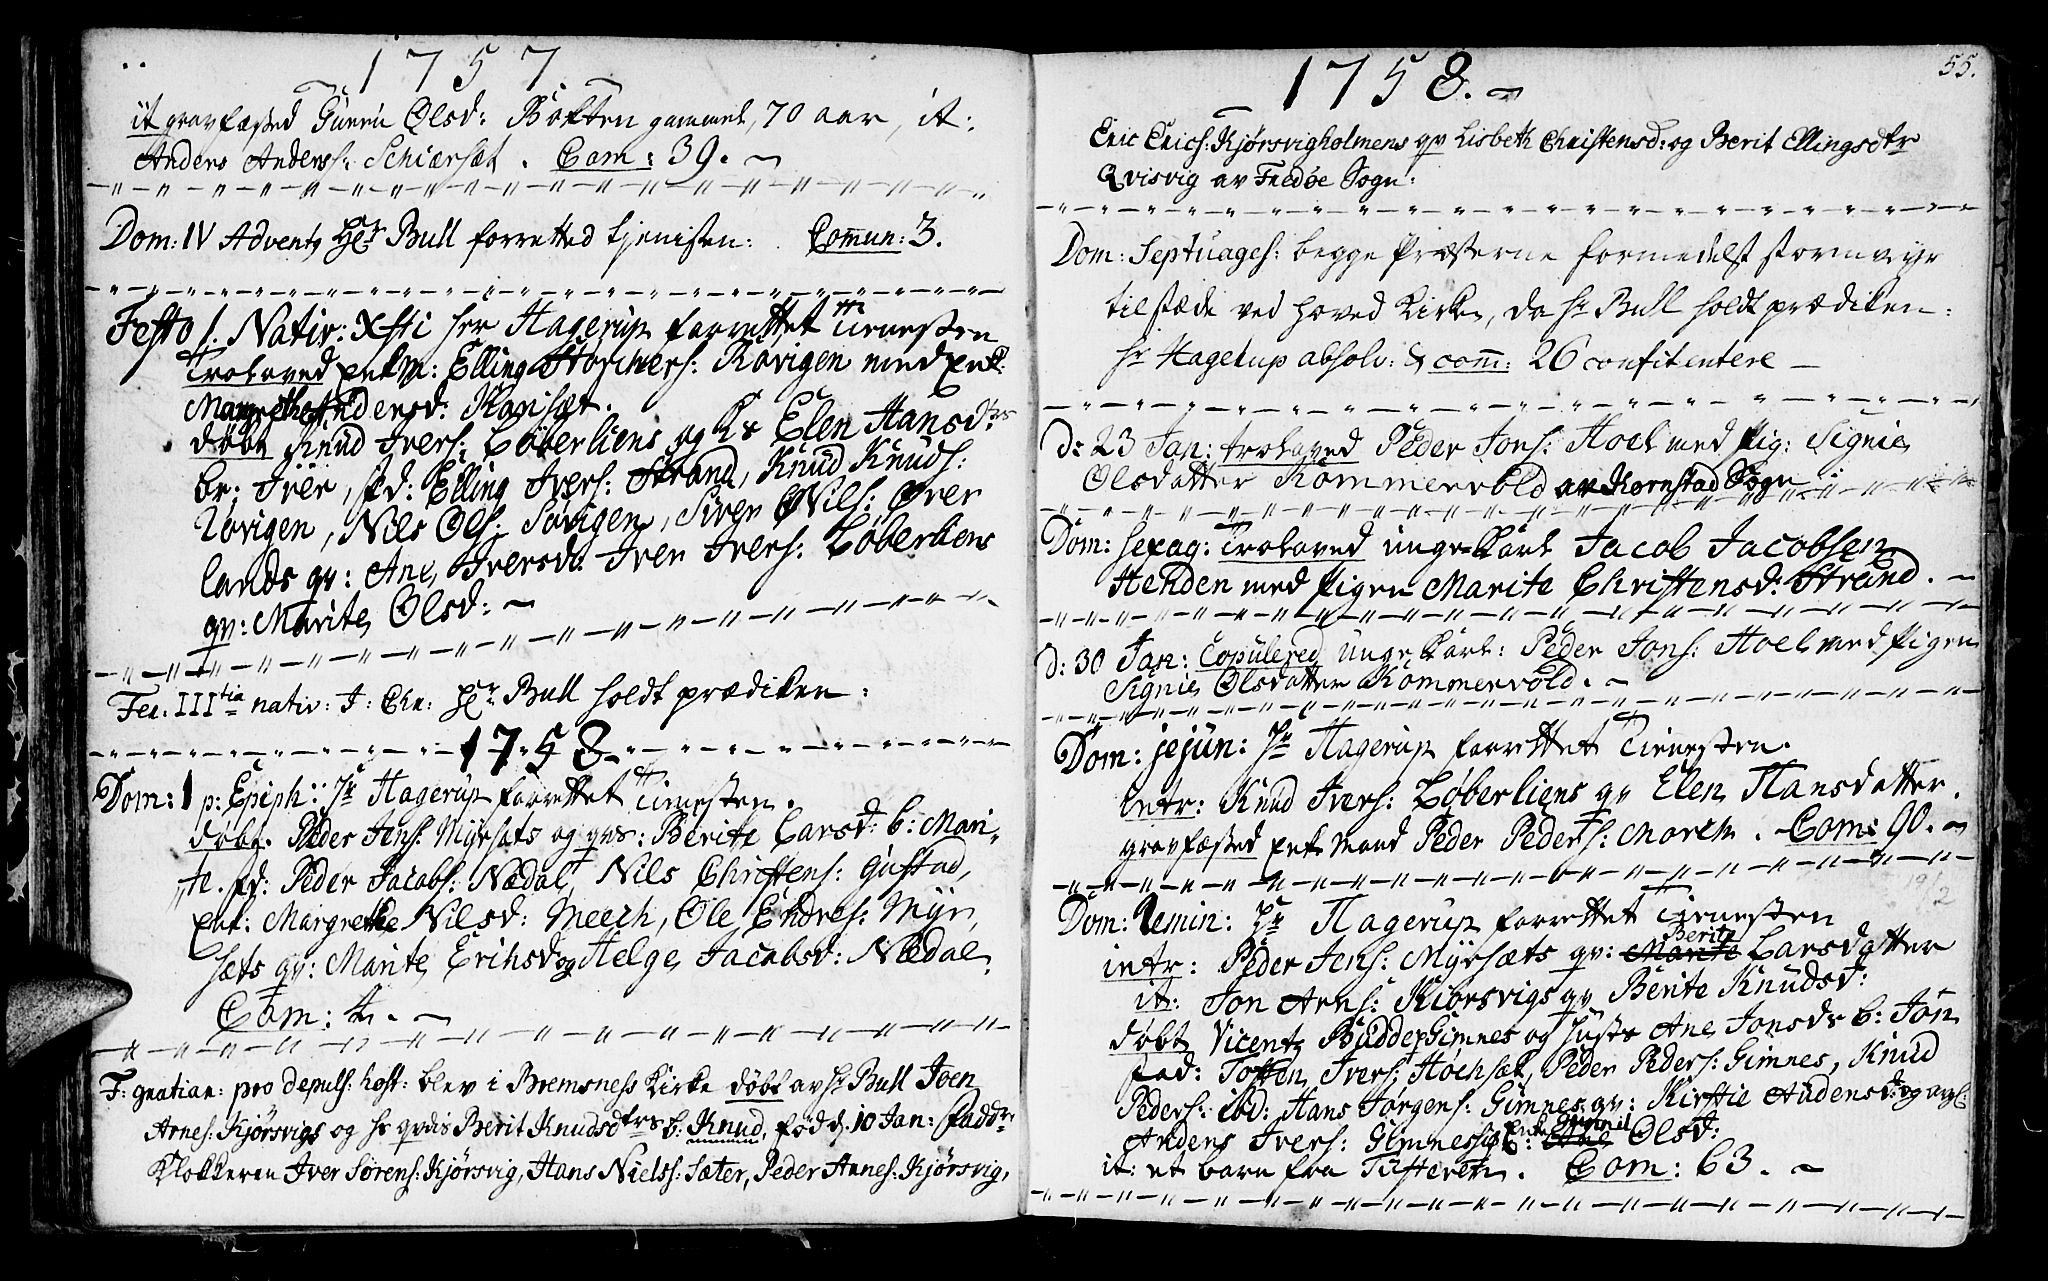 1757
it gravfæsted Guru Olsd: Bøkten gammel, 70 aar, it:
Anders Anders: Schiærsæt. Com: 39.
Dom: IV Advents Hr Bull forretted tjenisten: Commun: 3.
Festo 1. Nativ: Xsti her Hagerup forrettet Tienesten
Trolaved Enkm: Elling Stophers: Røvigen med Enk:
Margrethe Andersd: Honsæt.
døbt Knud Ivers: Løberliens og K: Elen Hansdtrs
br: Iver, fd: Elling Ivers: Strand, Knud Knuds:
Røvigen, Nils Ols: Søvigen, Siver Nils: Øver
lands qv: Ane Iversd: Iver Ivers: Løberliens
qv: Marite Olsd:
Fer: IIItia nativ: J: Chr: Hr Bull holdt prædiken:
1758
Dom: 1 p: Epiph: Hr Hagerup forrettet Tienesten.
døbt. Peder Jens: Myrsæts og qvs: Berite Larsd: b: Mari-
te. fd: Peder Jacobs: Nædal, Nils Christens: Gustad,
Enk: Margrethe Nilsd: Meech, Ole Endres: Myr
sæts qv: Marite Erihsd og Helge Jacobsd: Nædal.
Com: 4.
F: gratiar: pro depuls: host: blev i Bremsness Kirke døbt av Hr Bull Joen
Arnes: Kjørsvigs og hs qvdis Berit Knudsdtrs b: Knud, fød d. 10 Jan: Faddre
Klokkeren Iver Sørens: Kjørsvig, Hans Niels: Sæter, Peder Arnes: Kjørsvig,
55.
1758.
Eric Erics: Kjørsvigholmens qv Lisbeth Christensd: og Berit Ellingsdtr
Qvisvig av Fredøe Sogn:
Dom: Septuages: begge Præsterne formedelst stormveyr
tilstæde ved hoved Kirke, da Hr Bull holdt prædiken:
Hr Hagerup absolv: & comm: 26 confitentere
D: 23 Jan: trolaved Peder Jons: Hoel med Pig: Signie
Olsdatter Rommervold av Kornstad Sogn:
Dom: Sexag: Trolaved unge Karl Jacob Jacobsen
Henden med Pigen Marite Christensd: Strand.
d: 30 Jan: Copulered unge Karl: Peder Jons: Hoel med Pigen
Signie Olsdatter Rommervold.
Dom: jejun: Hr Hagerup forrettet Tienesten.
Intr: Knud Ivers: Løberliens qv Elen Hansdatter.
gravfæsted Enkemand Peder Peders: Morch. Com: 90.
19/2
Dom: Remin: Hr Hagerup forrettet Tienesten
Berite
intr: Peder Jens: Myrsæts qv: Marite Larsdatter
it: Jon Arns: Kiørsvigs qv Berite Knudsd:
døbt Vicentz Budde Gimnes og Hust: Ane Jonsds b: Jon
fad: Tosten Ivers: Høchsæt, Peder Peders: Gimnes, Knud
Peders: ibd: Hans Jørgens: Gimnes qv: Kirstie Andersd: og
Anders Ivers: Gimnes Enke Gunnil Olsd:
it: et barn fra Tusteren. Com: 63.